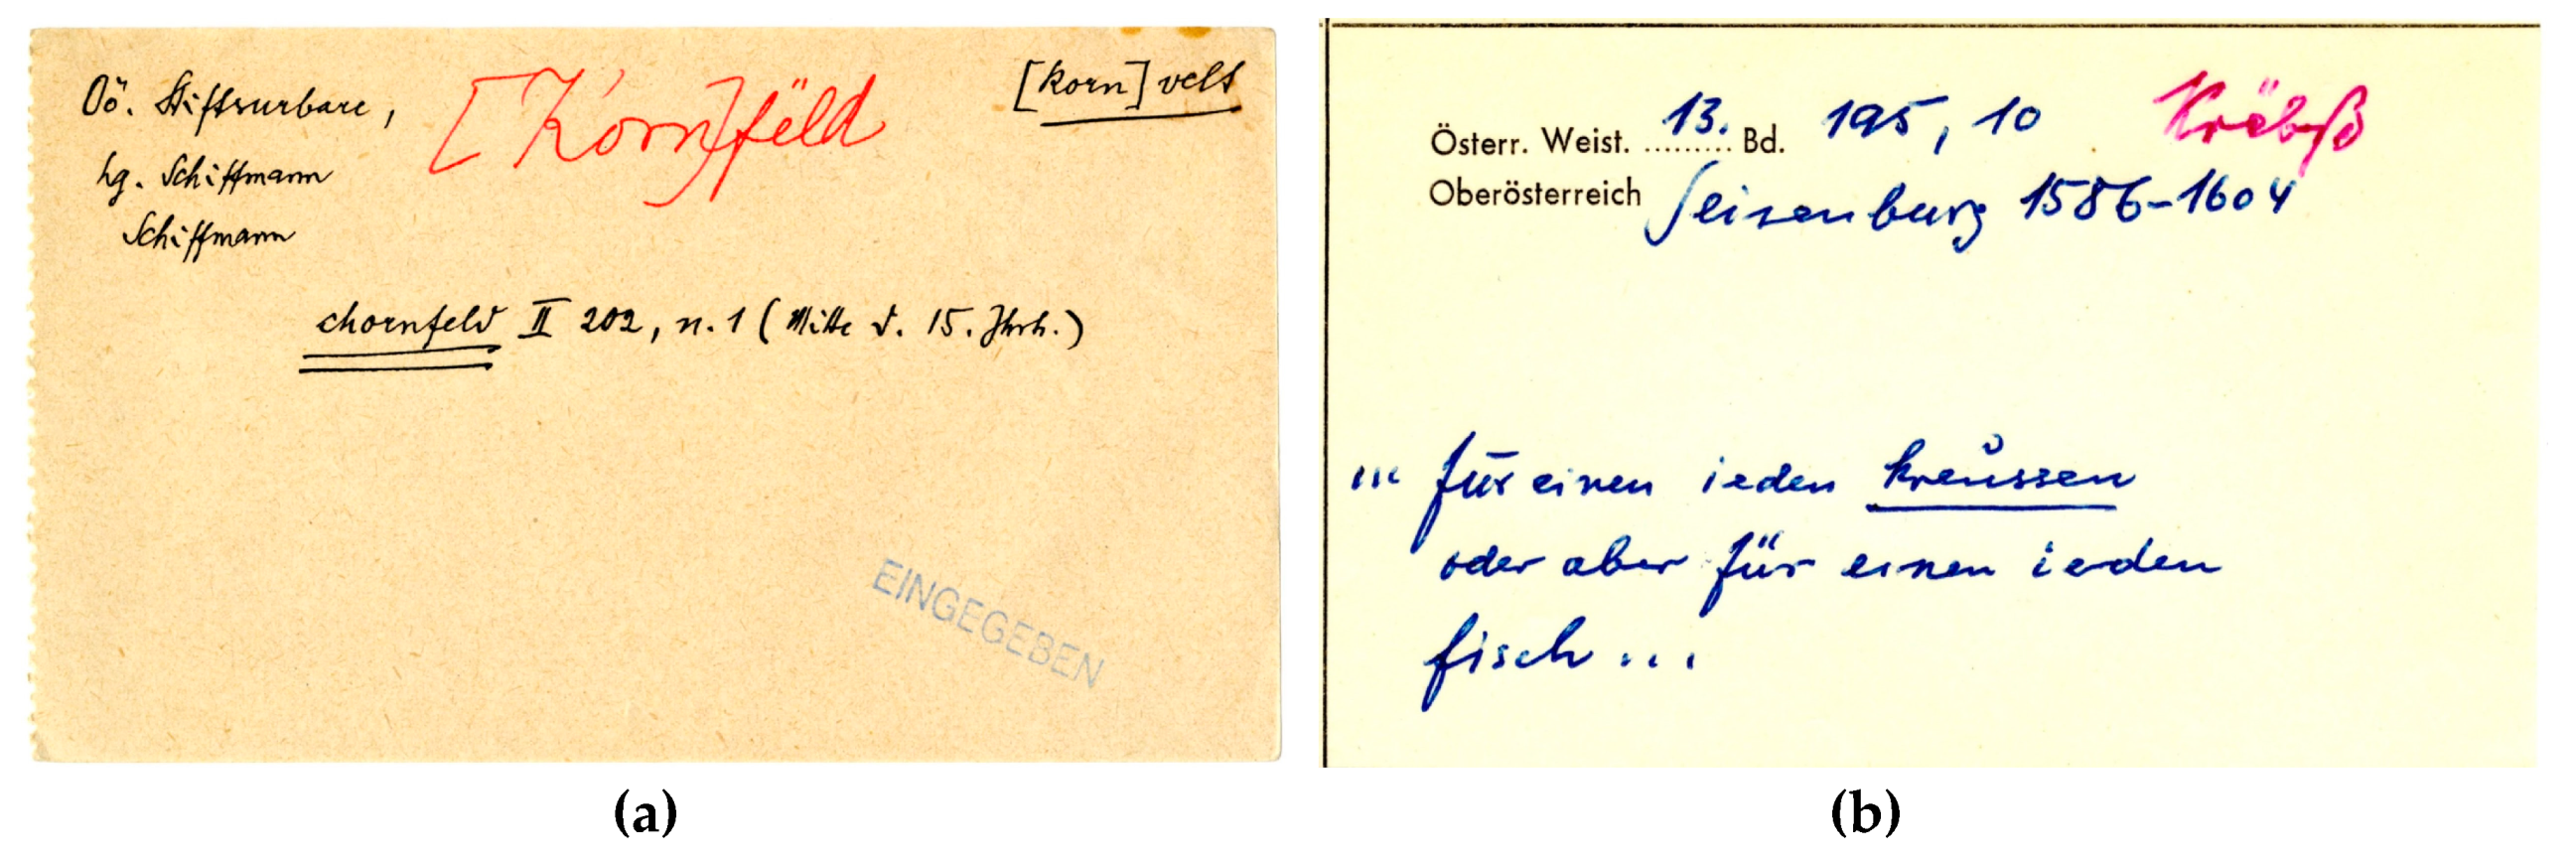 Oö. Stiftsurbare,
hg. Schiffmann
Schiffmann
[Korn]fëld
[korn]velt
chornfeld II 202, n. 1 (Mitte d. 15. Jhrh.)
EINGEGEBEN
(a)
Österr. Weist. 13. Bd. 195, 10
Krëbß
Oberösterreich Seisenburg 1586-1604
... für einen ieden kreůssen
oder aber für einen ieden
fisch ...
(b)